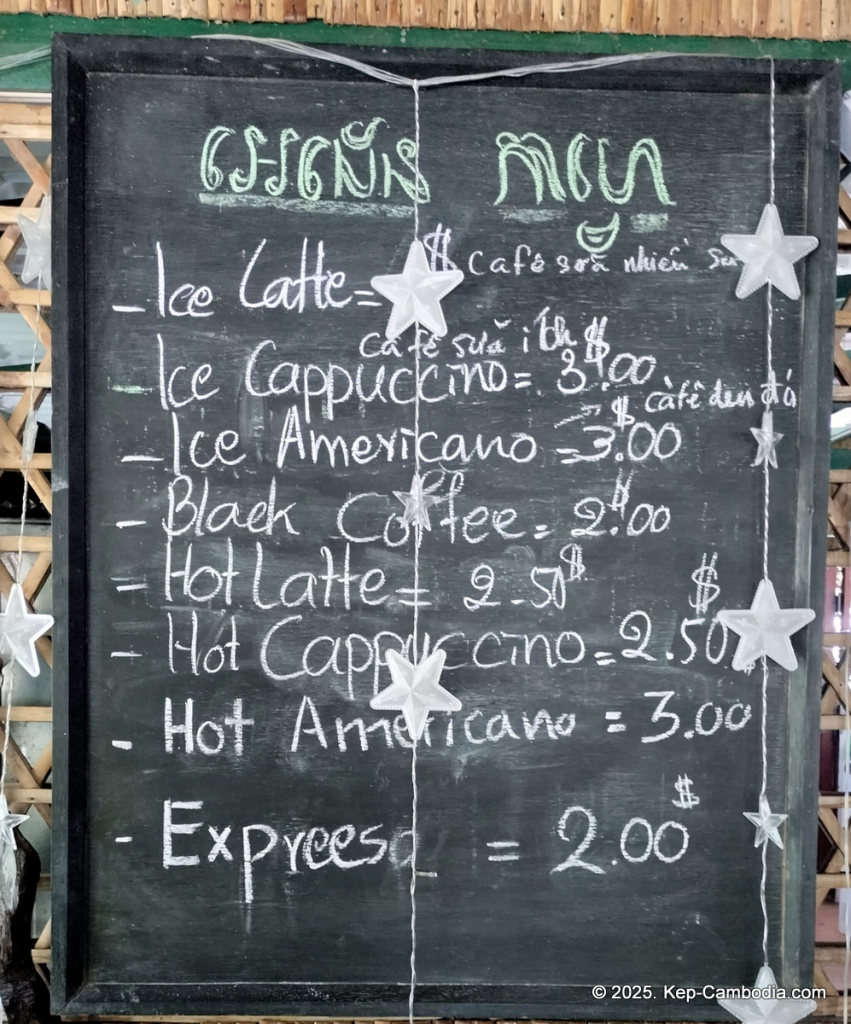 កាហ្វេ
$ café sữa nhiều sữ
- Ice Latte =
café sữa ít
- Ice Cappuccino = 3.00 $
café đen đá
- Ice Americano = 3.00 $
- Black Coffee = 2.00 $
- Hot Latte = 2.50 $
- Hot Cappuccino = 2.50 $
- Hot Americano = 3.00
- Expreeso = 2.00 $
© 2025. Kep-Cambodia.com